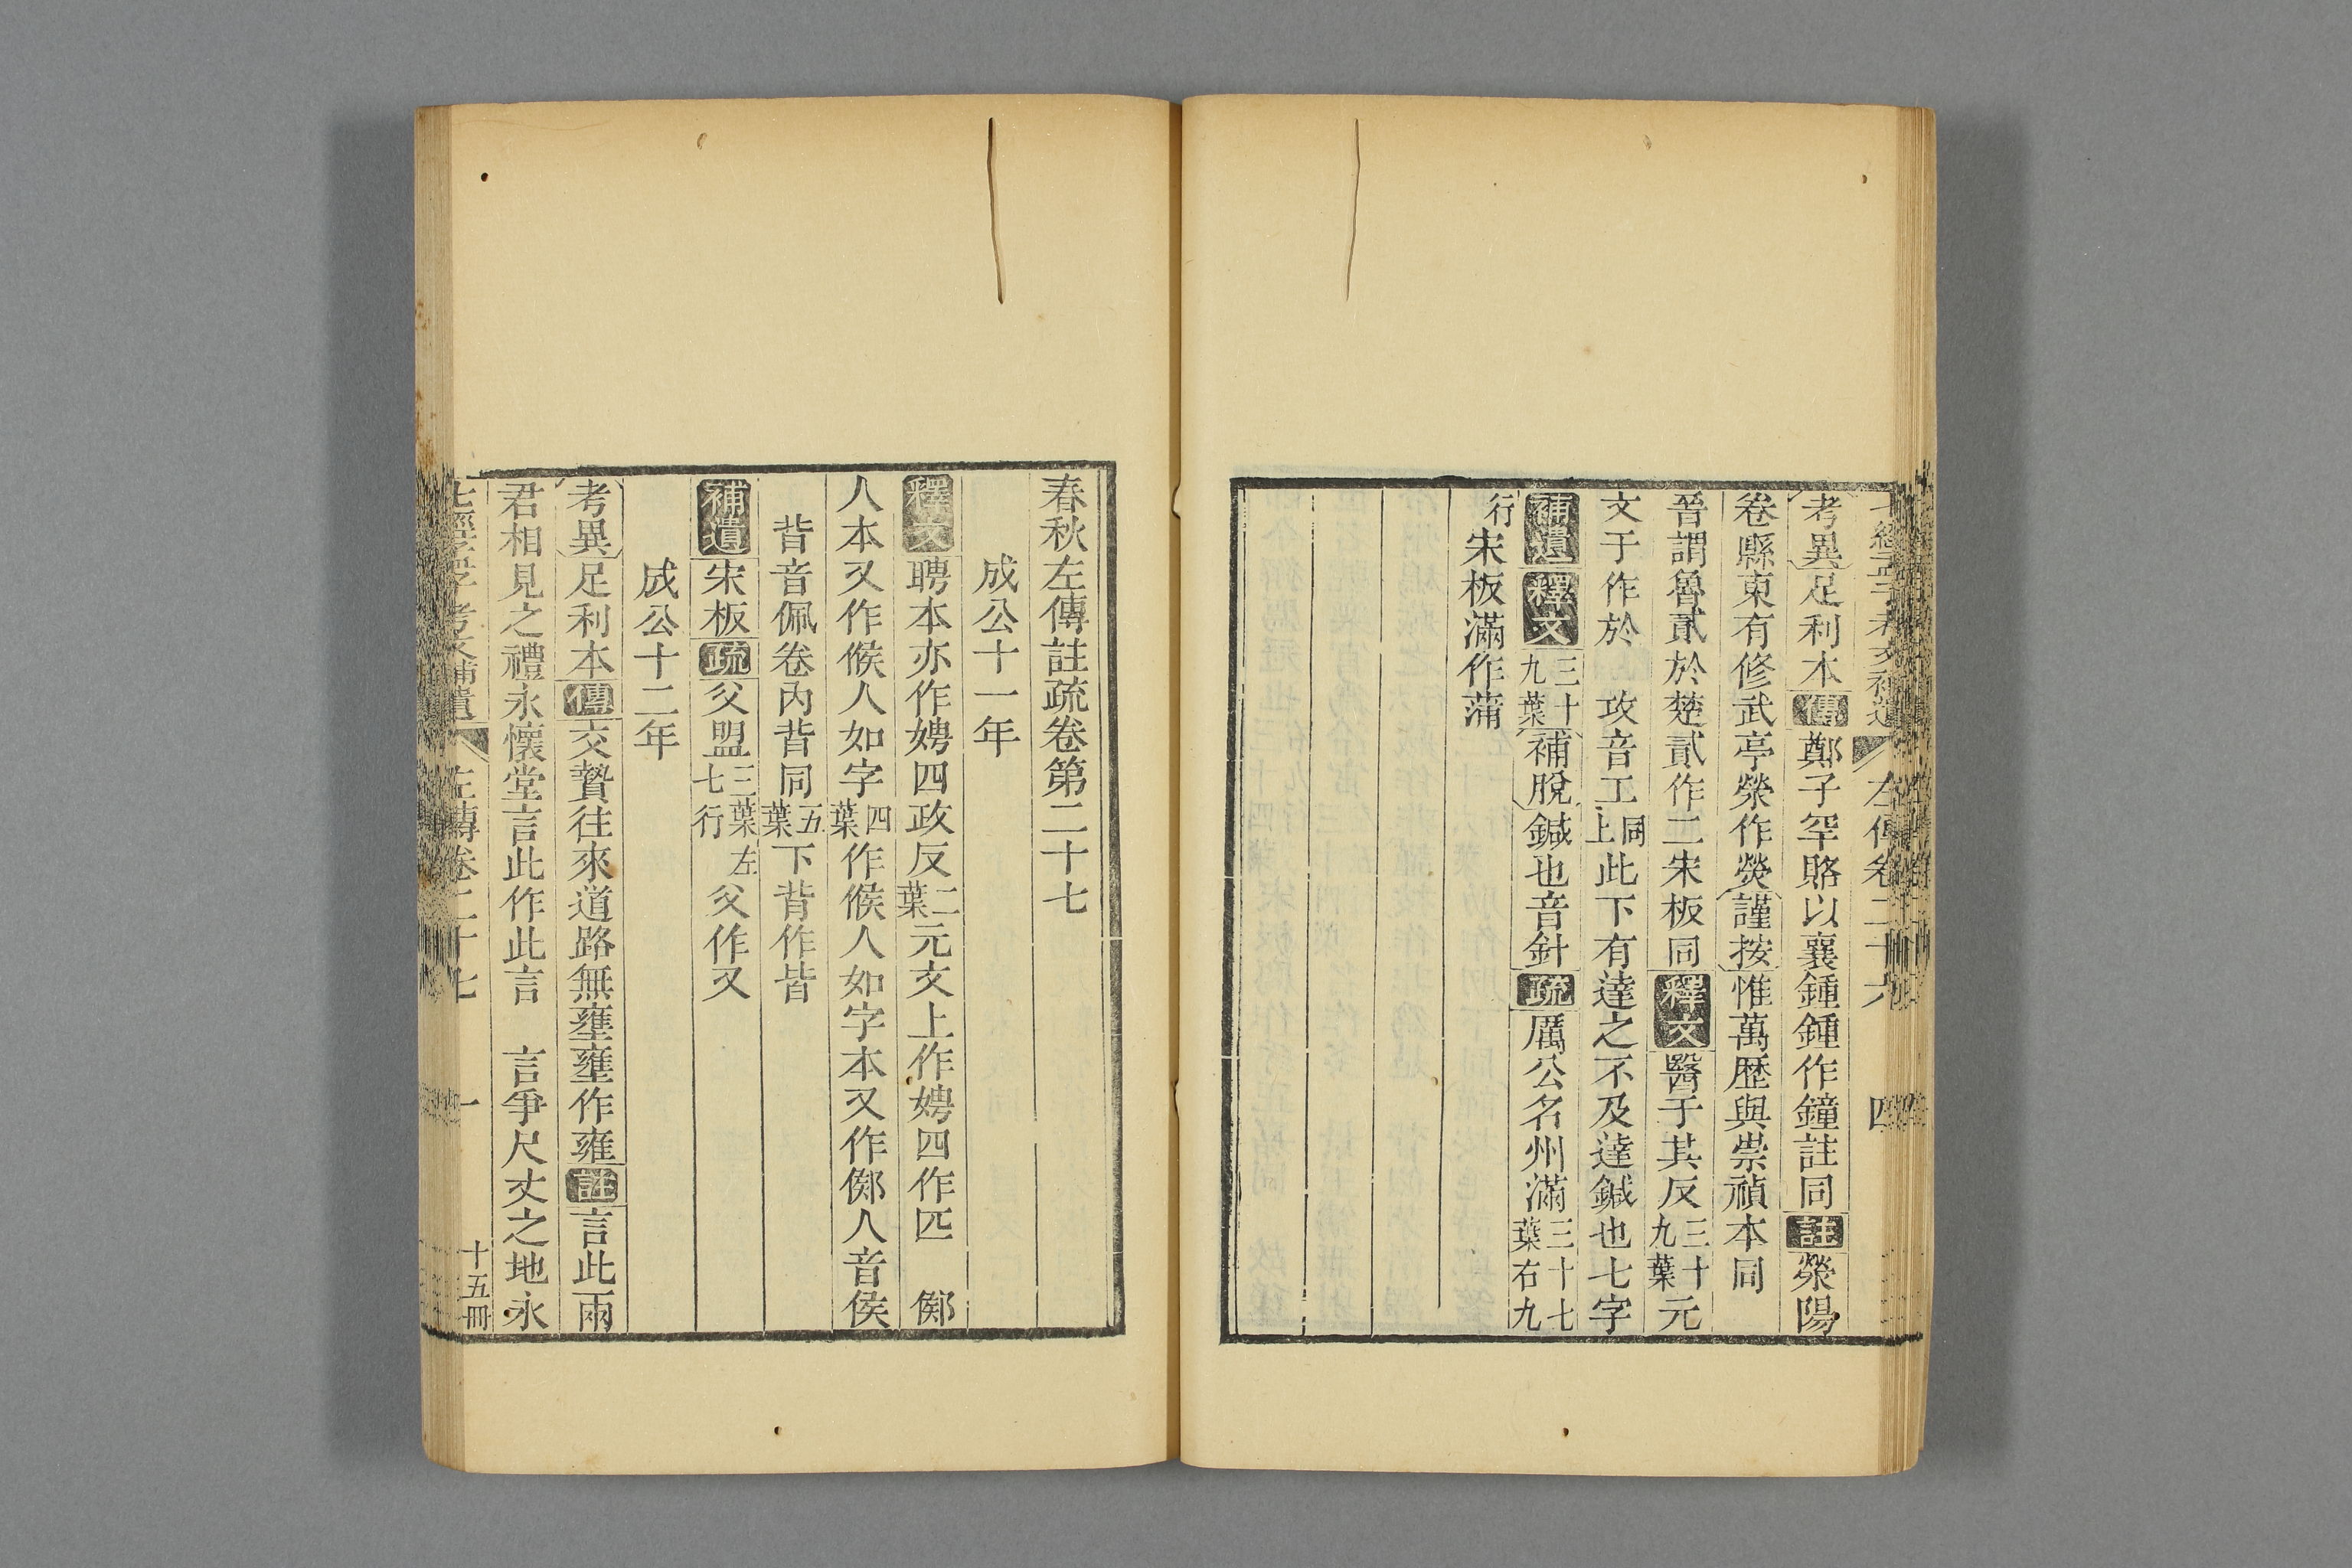 七經孟子考文補遺 左傳卷二十六 四
考異足利本傳鄭子罕賂以襄鍾鍾作鐘註同註滎陽
卷縣東有修武亭滎作熒謹按惟萬歷與崇禎本同
晉謂魯貳於楚貳作二宋板同釋文醫于其反三十九葉元
文于作於 攻音工同上此下有達之不及達鍼也七字
補遺釋文三十九葉補脫鍼也音針疏厲公名州滿三十七葉右九
行宋板滿作蒲
春秋左傳註疏卷第二十七
成公十一年
釋文聘本亦作娉四政反二葉元文上作娉四作匹 鄇
人本又作候人如字四葉作候人如字本又作鄇人音侯
背音佩卷內背同五葉下背作皆
補遺宋板疏父盟三葉左七行父作又
成公十二年
考異足利本傳交贄往來道路無壅壅作雍註言此兩
君相見之禮永懷堂言此作此言 言爭尺丈之地永
七經孟子考文補遺 左傳卷二十七 一 十五冊